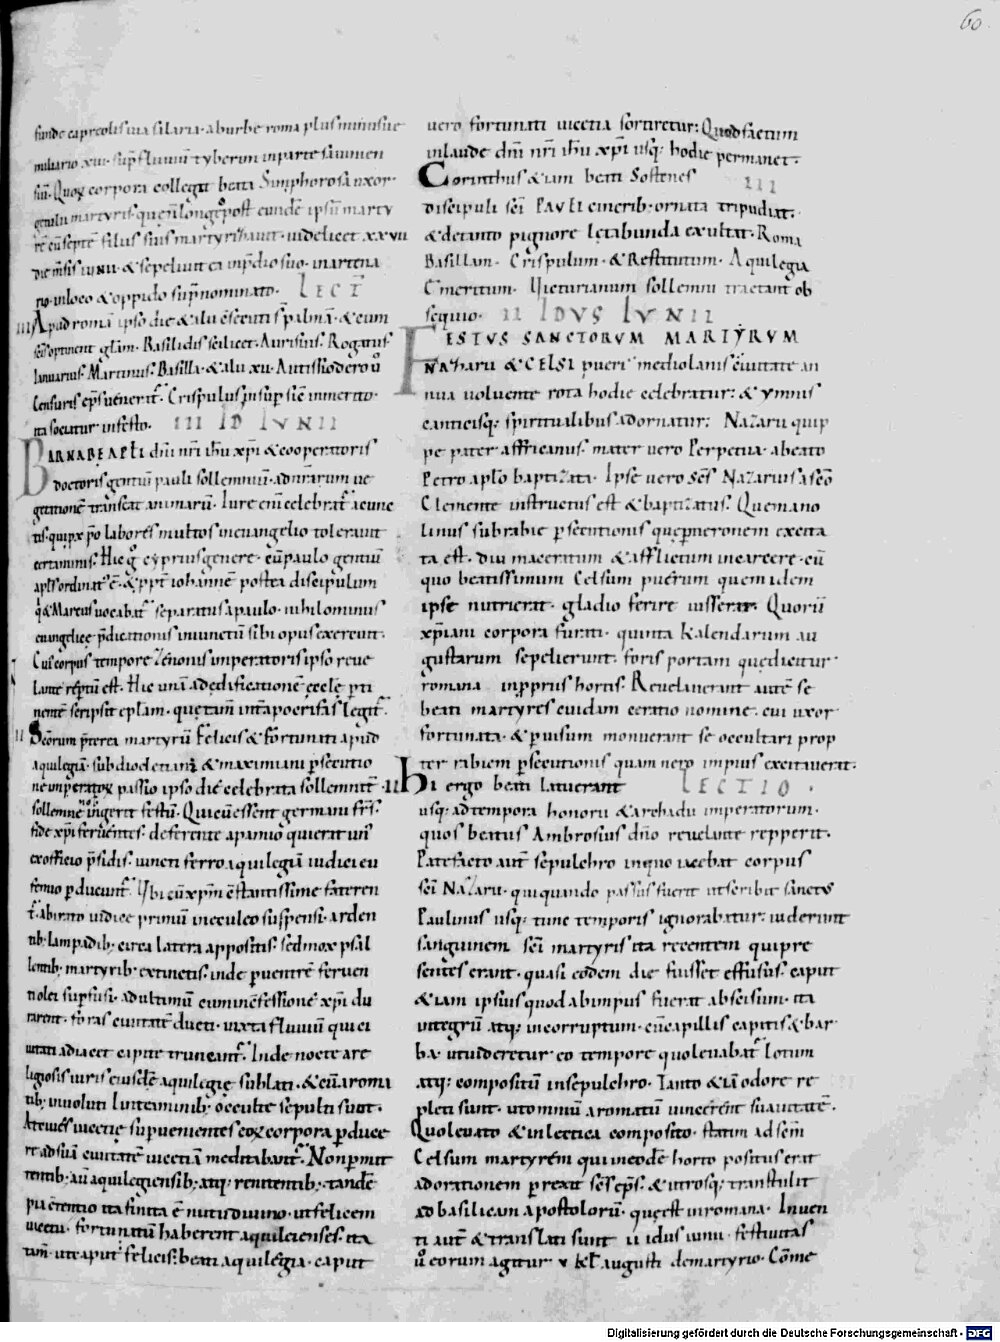 60
funde capreolis via salaria· ab urbe roma plus minusue
miliario xiiii· sup̄ fluuiū tyberim in parte sauinien
siū· Quoꝝ corpora collegit beata Simphorosa uxor·
getulii martyris· quę n̄ longe post eundē ipsū marty
rē cū septē filiis suis martyrizauit· uidelicet x·x·vii
die mēsis iunii· & sepeliuit ea in p̄dio suo· in arena
rio· in loco & oppido sup̄nominato· LECT̄
iii Apud romā ipso die & alii ēsecuti s̄ palmā· & eum
sēs optinent gl̄am· Basilidis scilicet· Aurisius· Rogatus
Ianuarius· Martinus· Basilla· & alii xii· Autissiodero ů
Censuris ep̄s uenerat̄· Crispulus insup̄ siē inmerito·
ita sociatur in festo· III ID IVNII
BARNABĘ AP̄LI dn̄i nr̄i ihu xp̄i & cooperatoris
doctoris gentiū pauli sollemniū· ad nr̄arum ue
getationē transeat animarū· Iure eni celebrat̄ a ieune
tis· qui px̄ p̄o labores multos in euangelio tolerant
certaminis· Hic g̊ cyprius genere· cū paulo gentiū
apl̄s ordinat̄ ē· & ppt̄ iohannē postea discipulum
q̊ & Marcus uocabat̄ separatus a paulo· nihilominus
euangelice p̄dicationis iniunctū sibi opus exercuit·
Cuius corpus tempore Zenonis imperatoris ipso reue
lante rep̄tū est· Hic unā ad ędificationē ecclę p̄ti
nentē scripsit eplām· quę tam̄ int̄ apocrifas legit̄·
ii Sc̄orum p̄terea martyrū Felicis & Fortunati apud
aquilegiā· sub diocletiani & maximiani p̄secutio
ne imperatoꝝ passio ipso die celebrata sollemnitē·
sollemne nob̄ ingerit festū· Qui cū essent germani frs̄·
fide xp̄i feruentes· deferente apamio qui erat un̄
ex officio p̄sidis· uincti ferro aquilegiā iudici eu
femio p̄ducunt̄· Vbi cū xp̄m ēstantissime fateren
t̄· ab irato iudice primū in eculeo suspensi· arden
tib; lampadib; circa latera appositis· sed mox psal
lentib; martyrib; extinctis· inde p̄ uentrē feruen
ti olei sup̄fusi· ad ultimū cum in ēfessione xp̄i du
rarent· foras ciuitatē ducti· iuxta fluuiū qui ci
uitati adiacet capite truncant̄· Inde nocte a re
ligiosis uiris eiusdē aquilegię sublati· & cū aroma
tib; inuoluti linteaminib; occulte sepulti sunt·
At ciues uicetię superuenientes eoꝝ corpora p̄duce
re ad suā ciuitatē uicetiam meditabant̄· Non p̄mit
tentib; aū aquilegiensib; atq; renitentib;· tandē
pia ētentio ita finita ē nutu diuino· ut felicem
uicetii· fortunatū haberent aquileienses· ita
tam̄· ut caput felicis beati aquilegia· caput
uero fortunati uicetia sortiretur; Quod factum
in laude dn̄i nr̄i ihu xp̄i usq; hodie permanet·
Corinthus & iam beati Sostenes III
discipuli sc̄i PAVLI cinerib; ornata tripudiat·
& de tanto pignore lętabunda exultat· Roma
Basillam· Crispulum· & Restitutum· Aquilegia
Cmeritum· Uicturianum sollemni tractant ob
sequio· II IDVS IVNII
FESTVS SANCTORVM MARTYRVM
NAZARII & CELSI pueri mediolanis ciuitate an
nua uoluente rota hodie celebratur; & ymnis
canticisq; spiritualibus adornatur; Nazarii quip
pe pater affricanus· mater uero Perpetua· a beato
Petro aplo baptizata· Ipse uero scs̄ Nazarius a scō
Clemente instructus est & baptizatus· Quem ano
linus sub rabie p̄secutionis quę p̄ neronem excita
ta est· diu maceratum & afflictum in carcere· cū
quo beatissimum Celsum puerum quem idem
ipse nutrierat· gladio ferire iusserat· Quorū
xp̄iani corpora furati· quinta kalendarum au
gustarum sepelierunt· foris portam quę dicitur
romana in p̄priis hortis· Reuelauerunt autē se
beati martyres cuidam ceratio nomine· cui uxor
fortunata· & p̄ uisum monuerunt se occultari prop
ter rabiem p̄secutionis quam nero impius excitauerat·
ii Hi ergo beati latuerunt LECTIO·
usq; ad tempora honorii & archadii imperatorum·
quos beatus Ambrosius dn̄o reuelante repperit·
Patefacto aut̄ sepulchro in quo iacebat corpus
sc̄i Nazarii· qui quando passus fuerit ut scribit sanctus
Paulinus usq; tunc temporis ignorabatur; uiderunt
sanguinem sc̄i martyris ita recentem qui pre
sentes erant· quasi eodem die fuisset effusus· caput
& iam ipsius quod ab impiis fuerat abscisum· ita
integrū atq; incorruptum· cū capillis capitis & bar
ba· ut uideretur eo tempore quo leuabat̄ lotum
atq; compositū in sepulchro· Tanto & iā odore re
pleti sunt· ut omniū aromatū uinceret suauitatē·
Quo leuato & in lectica composito· statim ad sc̄m
Celsum martyrem qui in eodē horto positus erat
ad orationem p̄rexit scs̄ ep̄s· & utrosq; transtulit
ad basilicam apostolorū· quę est in romana· Inuen
ti aut̄ & translati sunt ii idus iunii· festiuitas
ů eorum agitur v kl̄ augusti de martyrio· Cōme
Digitalisierung gefördert durch die Deutsche Forschungsgemeinschaft - DFG